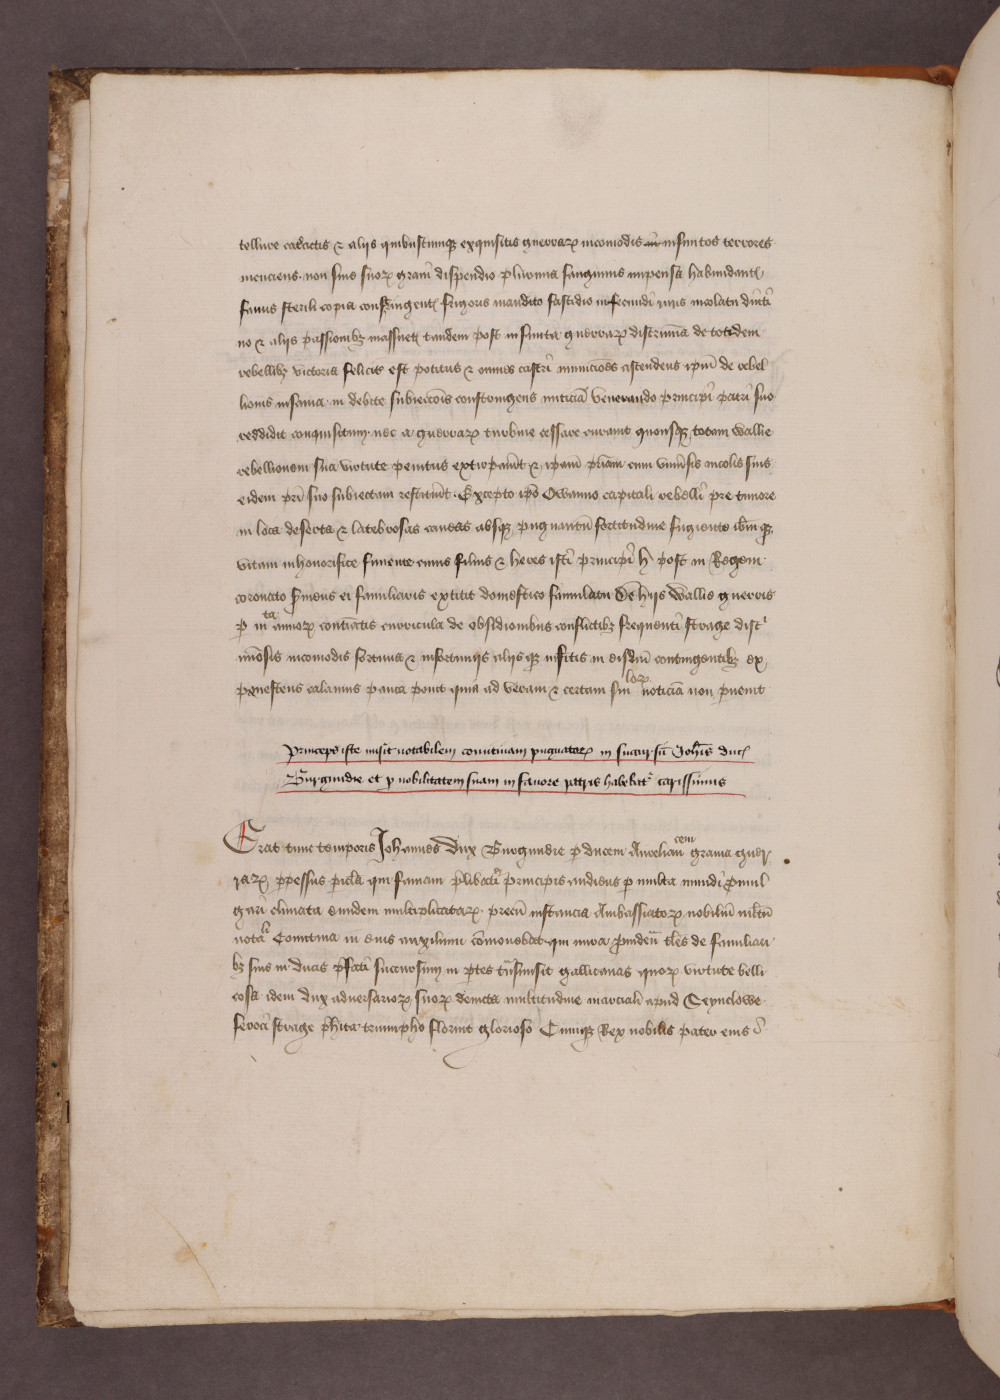 tellure cauactis ⁊ alijs quibuscumqꝫ exquisitis guerraꝝ incomodis infinitos terrores
inuiciens non sine suoꝝ graui dispendio pluuina sanguinis impensa habundanti
famis sterili copia constringenti frigoris inaudito fastidio infecundi iuris incolatu diuti
no ⁊ alijs passionibꝫ tandem post infinita guerraꝝ discrimina de totidem
rebellibꝫ victoria felicit est potitus ⁊ omnes castri municiões ascendens ipm̄ de rebel
lionis insania in debite subieccois constringens iusticiā venerando principi patri suo
reddidit conquisitum nec a guerraꝝ turbine cessare curauit quousqꝫ totam Wallie
rebellionem sua virtute penitus extirpauit ⁊ ipam pͥam cum vniusis incolis suis
eidem pri suo subiectam restituit Excepto ipo Owanno capitali rebelli pre timore
in loca deserta ⁊ latebrosas caueas absqꝫ pugnantiū fortitudine fugiente ibmqꝫ
vitam inhonorifice finiente cuius filius ⁊ heres isti principi H post in Regem
coronato seruiens ei familiaris extitit domestico famulatu De hijs Wallie guerris
ꝑ inta annoꝝ contictis curricula de obsidionibus conflictibꝫ frequenti strage disc
nosis incomodis fortunis ⁊ infortunijs alijsqꝫ infitis in eisdem contingentibꝫ ex
calamus pauca ponit quia ad veram ⁊ certam sin loꝝ noticiā non puenit
Princeps iste misit notabilem comitiuam pugnatorꝝ in succursū Johis duc
Burgundie et ꝓ nobilitatem suam in fauore patris habebatr carissimus
Erat tunc temporis Johannes Dux Burgundie ꝑ ducem Aureliancem grauia guer
raꝝ ꝑpessus picla qui famam plibati principis audiens ꝑ multa mundi ꝓmul
gari climata eiusdem multiplicatarꝝ precū instancia Ambassiatorꝝ nobiliū militū
notali Comitiua in eius auxilium cōmouebat qui mira ꝓuiden tles de familiari
bꝫ suis in ducis pfati succursum in ptes tnsmisit gallicanas quorꝝ virtute belli
cosa idem dux aduersarioꝝ suoꝝ deuicta multitudine marciali apud Seynclowe
feroci strage phita triumpho floruit glorioso Cumqꝫ Rex nobilis pater eius